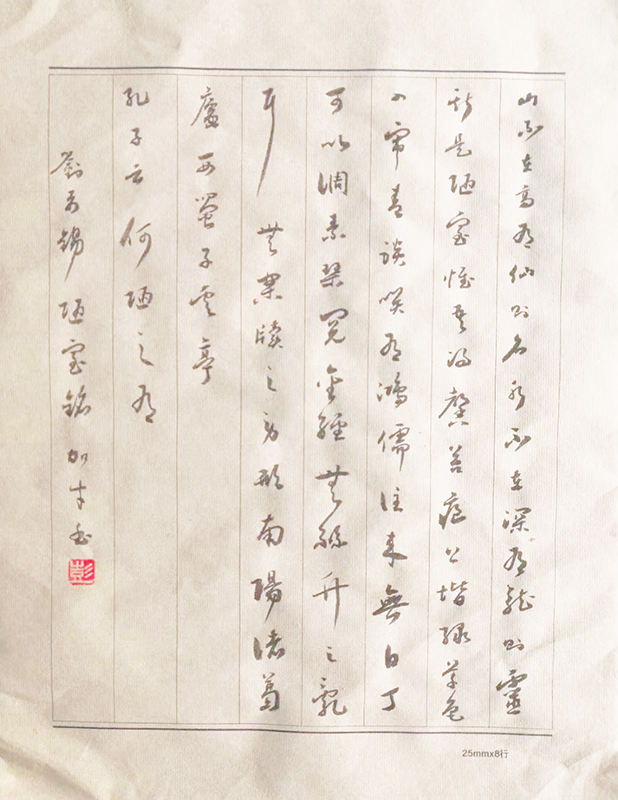 山不在高有仙则名水不在深有龍则靈
斯是陋室惟吾德馨苔痕上堦緑草色
入帘青談咲有鴻儒往来無白丁
可以調素琴閲金經無絲竹之亂
耳 無案牘之勞形南陽諸葛
廬西蜀子雲亭
孔子云何陋之有
劉禹錫陋室銘加才書
彭
25mmx8行